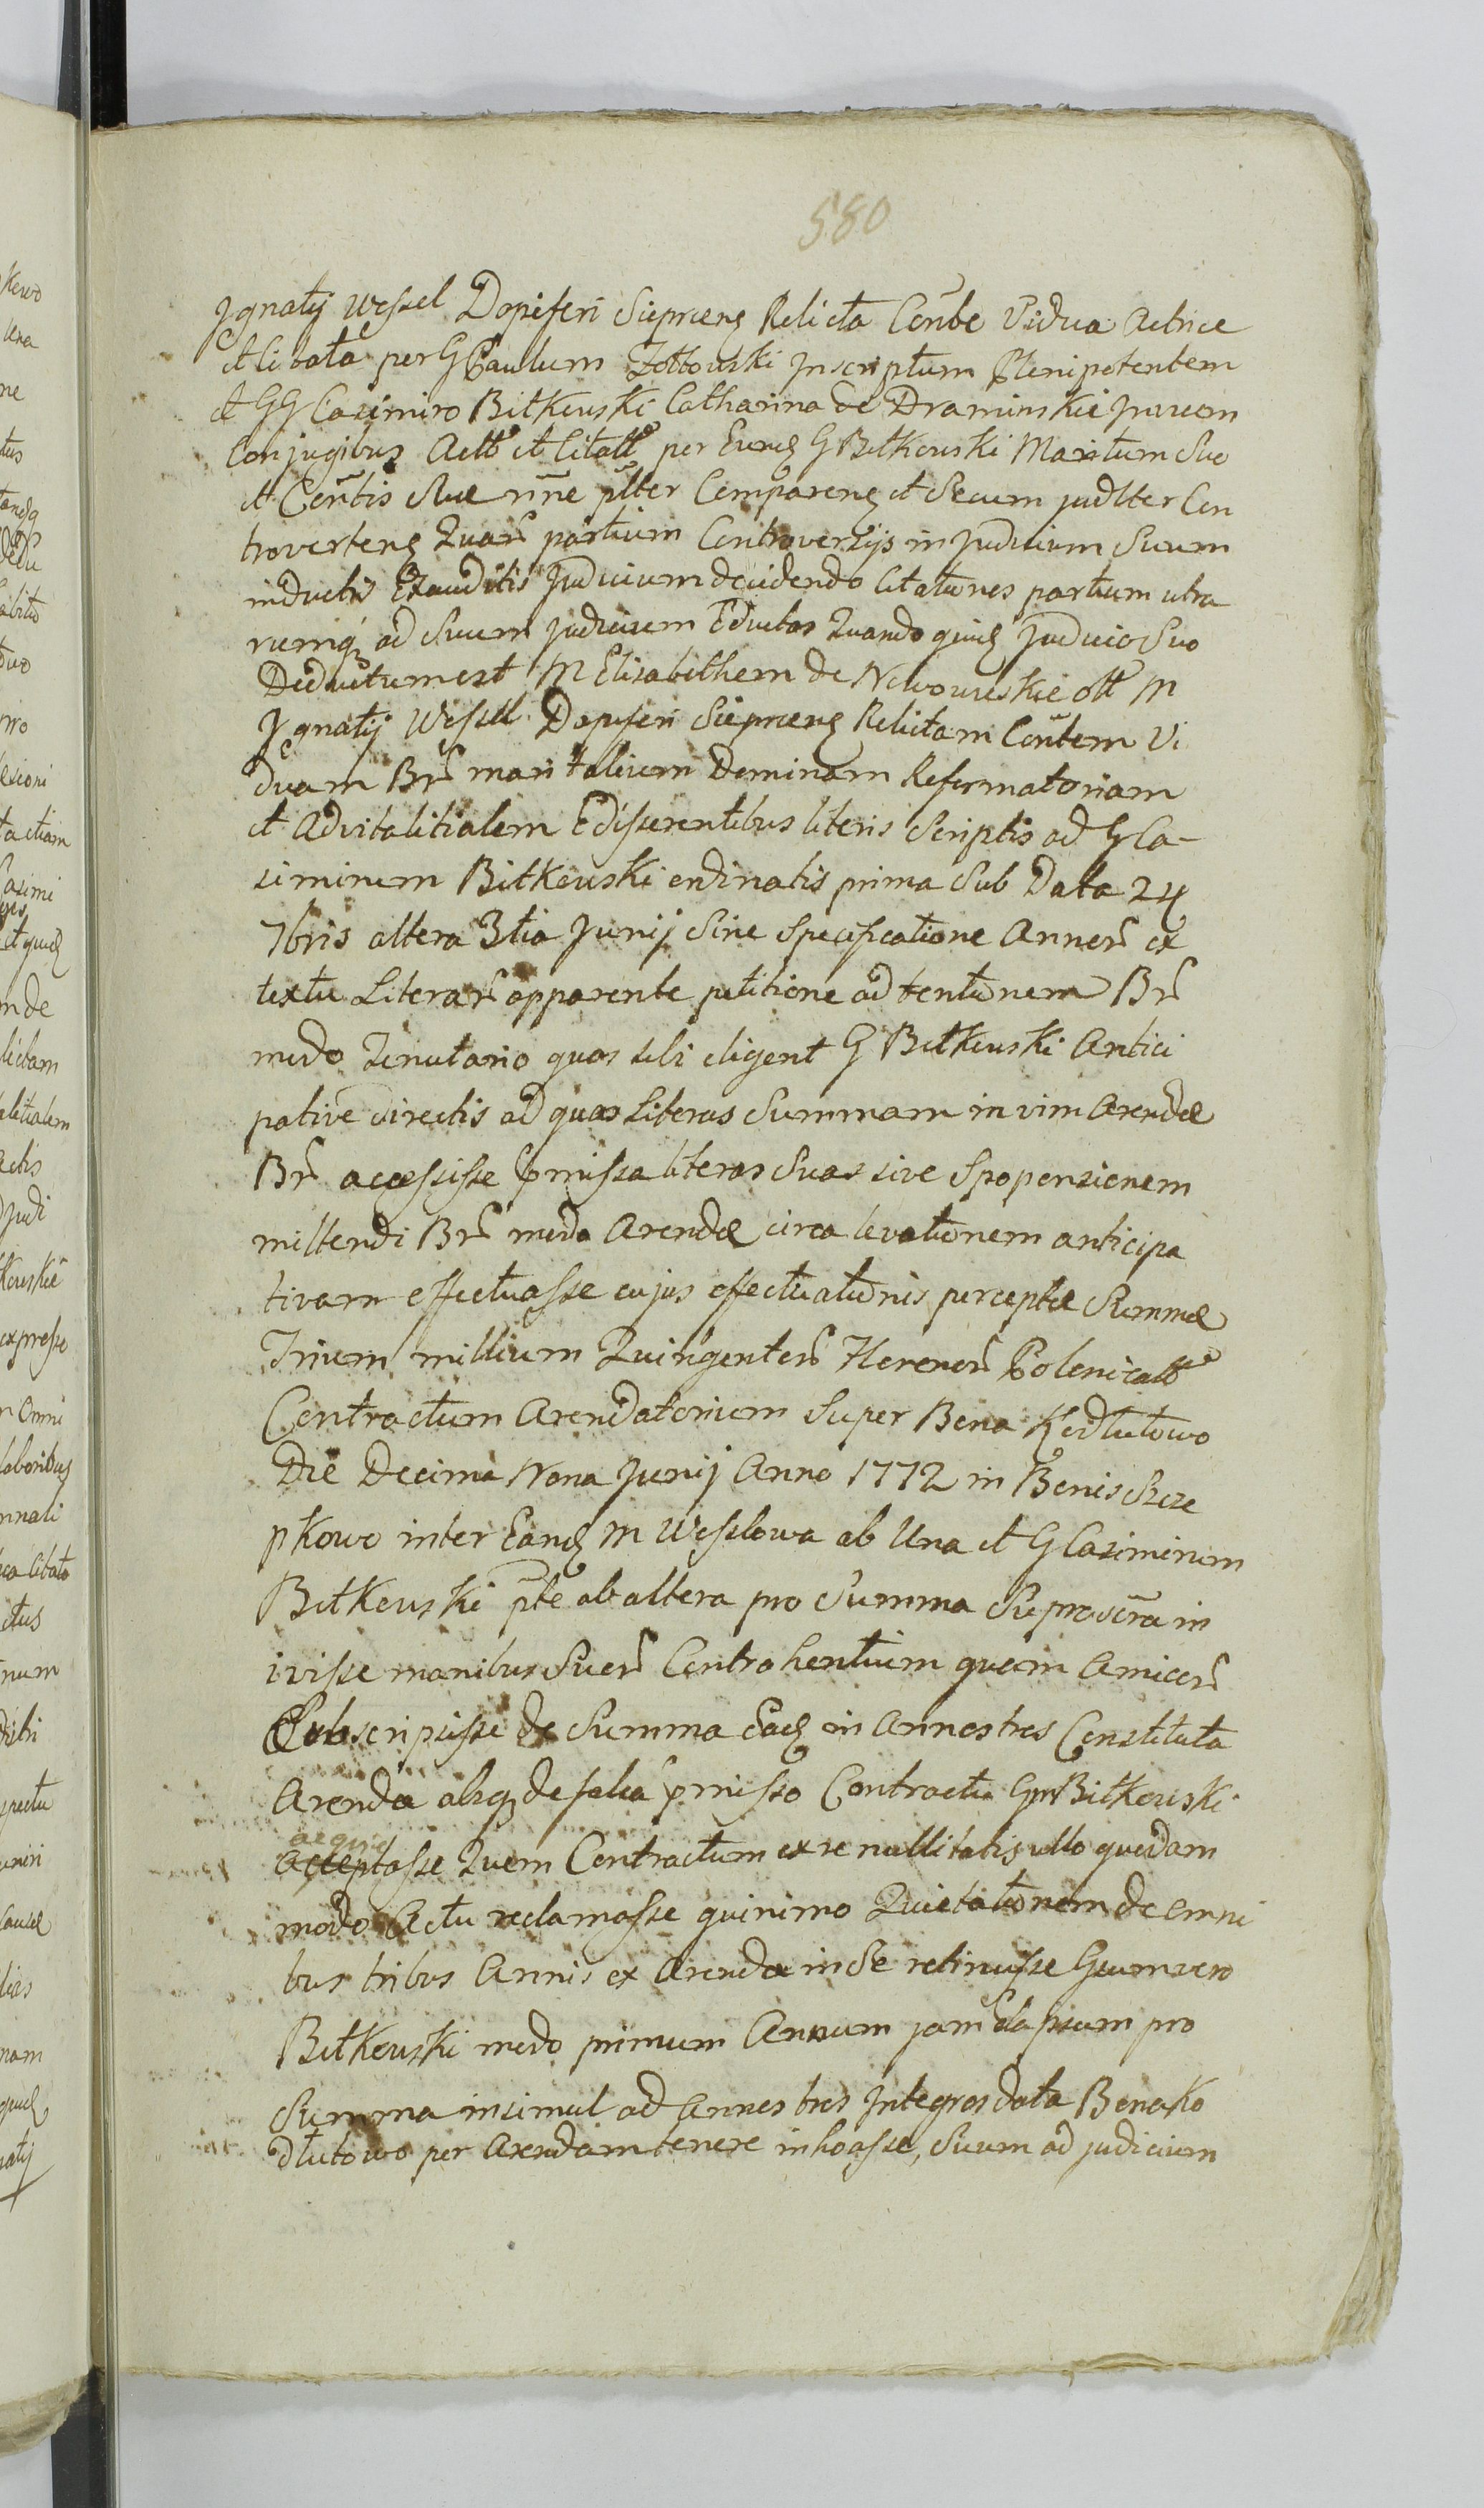 580
Jgnatij Wessel Dapiferi Sieprcens Relicta Conte Vidua Actrice
et Citata per G Paulum Zottowski Jnscriptum Plenipotentem
et GG Casimiro Bitkowski Catharina de Draminskie
Conjugibus Actt et Citatt per Eund G Bitkowski Maritum Suo
et Contis Suae nne plter Comparens et Secum judlter Con
trovertens Quar partium Controversijs in Judicium Suum
inductis Exauditis Judicium decidendo Citationes partium utra
rumq ad Suum judicium Eductas Quando quid Judicio Suo
Deductum est M Elisabethem de Nowowieskie olt M
Jgnatij Wessel Dapiferi Sieprcens Relictam Contem Vi
duam Br maritalium Dominam Reformatoriam
et Advitalitialem Edisserentibus literis Scriptis ad G Ca-
simirum Bitkowski ordinatis prima Sub Data 24
7bris altera 3tia Junij Sine Specificatione Annor ex
textu Literar apparente petitione ad tentionem Br
modo Tenutario quas sibi eligent G Bitkowski Antici
pative directis ad quas Literas Summam in vim Arendae
Br accessisse pmissa literas Suas sive Sproponsionem
mittendi Br modo Arendae circa levationem anticipa
tivam effectuasse cujus effectuationis perceptae Summae
Trium millium Quingentor Florenor Polonicall
Contractum Arendatorium Super Bona Kodlutowo
Die Decima Nona Junij Anno 1772 in Bonis Szcze
pkowo inter Eand M Wesslowa ab Una et G Casimirum
Bitkowski pte ab altera pro Summa Suprascra in
ivisse manibus Suor Contrahentium quam Amicor
Subscripsisse de Summa Ead in Annos tres Constituta
Arenda absq defalca pmisso Contractu Gm Bitkowski
aeque
acceptasse Quem Contractum ex re nullitatis ullo quodam
modo Actu reclamasse quinimo Quietationem de omni
bus tribus Annis ex Arenda in Se retinuisse Gum vero
Bitkowski modo primum Annum jam Elapsum pro
Summa insimul ad Annos tres Jntegros data Bona Ko
dlutowo per Arendam tenere inhoasse, Suum ad judicium